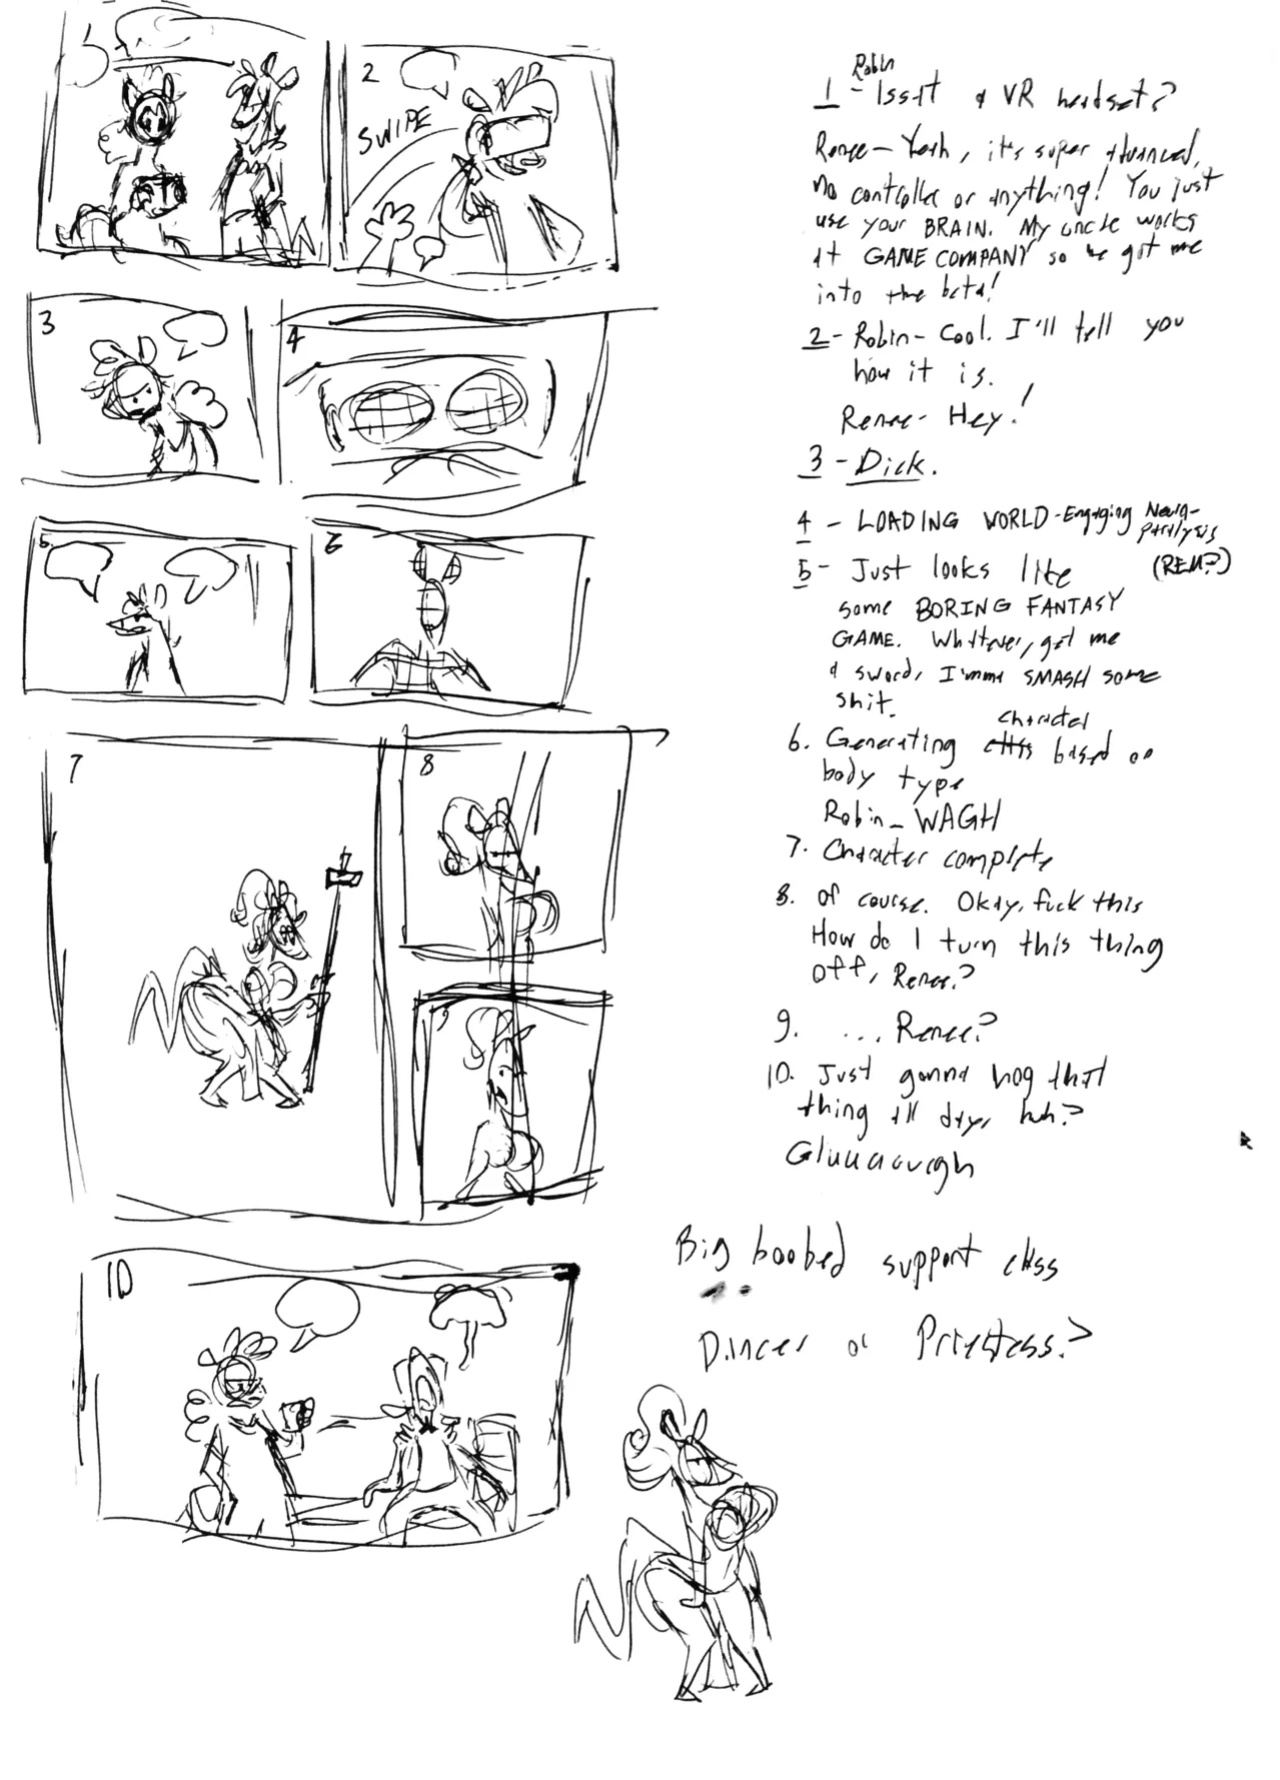 1
2
SWIPE
3
4
5
6
7
8
9
10
Robin
1 - Issit a VR headset?
Renee - Yeah, it's super advanced,
no controller or anything! You just
use your BRAIN. My uncle works
at GAME COMPANY so he got me
into the beta!
2 - Robin - Cool. I'll tell you
how it is.
Renee - Hey!
3 - Dick.
4 - LOADING WORLD - Engaging Neuro-
Paralysis
(REM?)
5 - Just looks like
some BORING FANTASY
GAME. Whatever, get me
a sword, I'mma SMASH some
shit.
character
6. Generating class based on
body type
Robin - WAGH
7. Character complete
8. Of course. Okay, fuck this
How do I turn this thing
off, Renee?
9. ... Renee?
10. Just gonna hog that
thing all day, huh?
Gluuuuurgh
Big boobed support class
Dancer or Priestess?